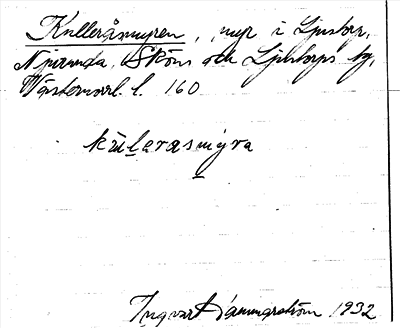 Kulleråsmyren, myr i Ljustorp,
Njurunda, Sköns och Ljustorps tg,
Västernorrl. l. 160
kulerasmyra
Ingvar Hammarström 1932